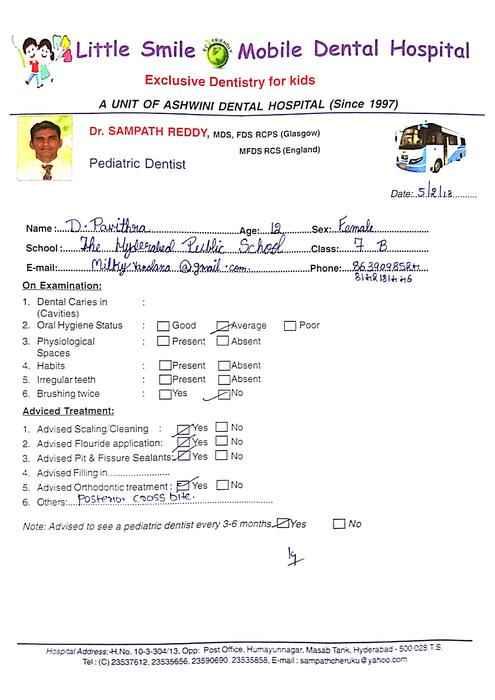 Little Smile Mobile Dental Hospital
Exclusive Dentistry for kids
A UNIT OF ASHWINI DENTAL HOSPITAL (Since 1997)
Dr. SAMPATH REDDY, MDS, FDS RCPS (Glasgow)
MFDS RCS (England)
Pediatric Dentist
Date: 5/2/13
Name: D. Pavithra Age: 12 Sex: Female
School: The Hyderabad Public School Class: 7 B
E-mail: @gmail.com Phone:
On Examination:
1. Dental Caries in :
(Cavities)
2. Oral Hygiene Status : Good Average Poor
3. Physiological : Present Absent
Spaces
4. Habits : Present Absent
5. Irregular teeth : Present Absent
6. Brushing twice : Yes No
Adviced Treatment:
1. Advised Scaling/Cleaning : Yes No
2. Advised Flouride application: Yes No
3. Advised Pit & Fissure Sealants: Yes No
4. Advised Filling in
5. Advised Orthodontic treatment : Yes No
6. Others: Posterior cross bite.
Note: Advised to see a pediatric dentist every 3-6 months Yes No
Hospital Address:-H.No. 10-3-304/13, Opp: Post Office, Humayunnagar, Masab Tank, Hyderabad - 500 028 T.S.
Tel : (C) 23537612, 23535656, 23590690, 23535858, E-mail : sampathcheruku@yahoo.com